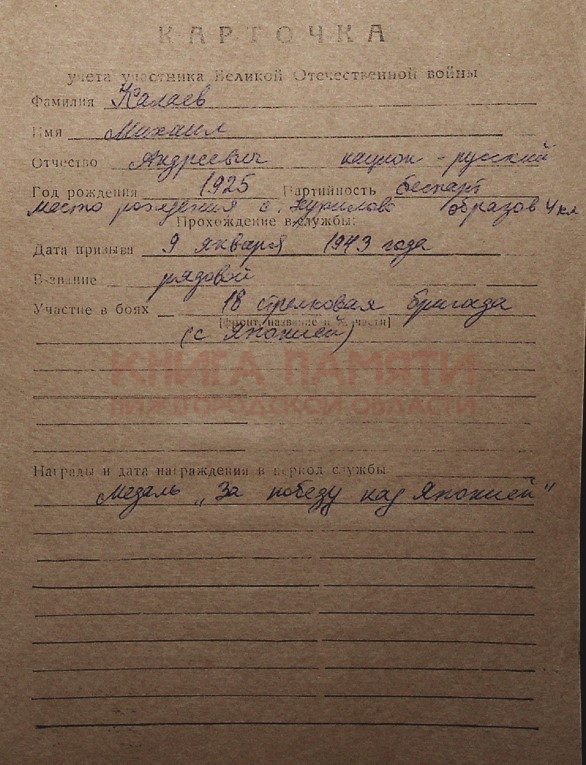 КАРТОЧКА
учета участника Великой Отечественной войны
Фамилия Калаев
Имя Михаил
Отчество Андреевич национ - русский
Год рождения 1925 Партийность беспарт
место рождения с. образов 4 кл
Прохождение службы:
Дата призыва 9 января 1943 года
Звание рядовой
Участие в боях 18 стрелковая бригада
[фронт, название и № части]
(с Японией)
КНИГА ПАМЯТИ
НИЖЕГОРОДСКОЙ ОБЛАСТИ
Награды и дата награждения в период службы
Медаль „За победу над Японией"